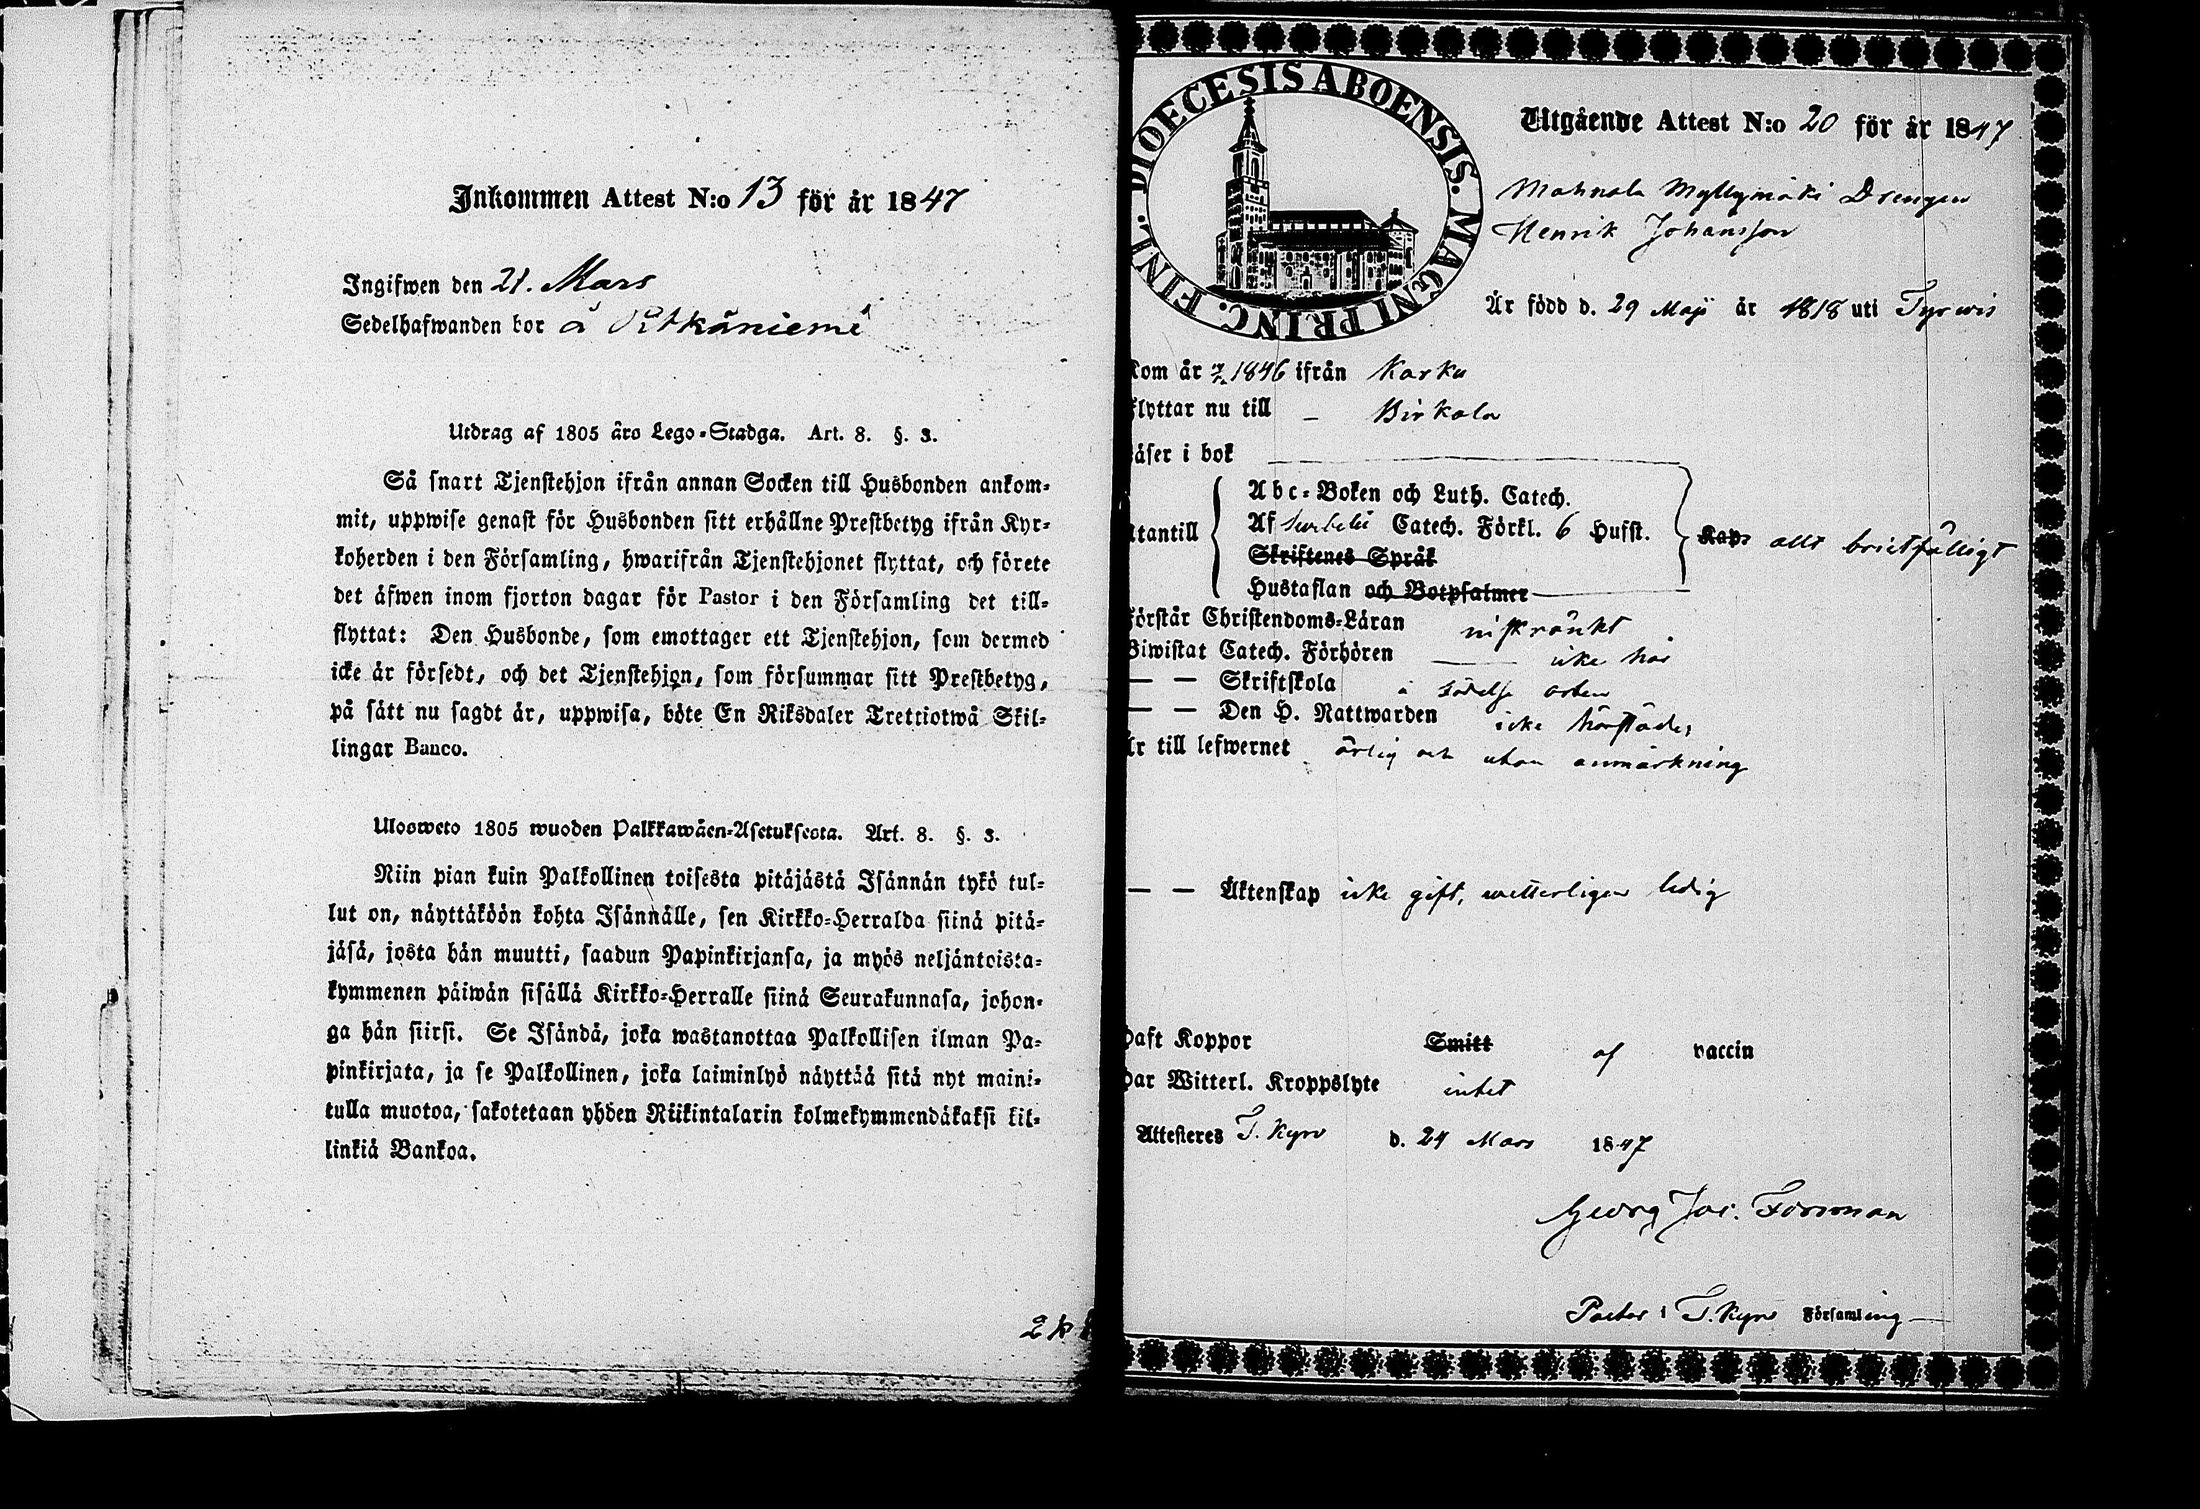 Inkommen Attest N:o 13 för år 1847
Ingifwen den 21. Mars
Sedelhafwanden bor å Pitkäniemi
Utdrag af 1805 års Lego-Stadga. Art. 8. §. 3.
Så snart Tjenstehjon ifrån annan Socken till Husbonden ankom-
mit, uppwise genast för Husbonden sitt erhållne Prestbetyg ifrån Kyr-
koherden i den Församling, hwarifrån Tjenstehjonet flyttat, och förete
det äfwen inom fjorton dagar för Pastor i den Församling det till-
flyttat: Den Husbonde, som emottager ett Tjenstehjon, som dermed
icke är försedt, och det Tjenstehjon, som försummar sitt Prestbetyg,
på sätt nu sagdt är, uppwisa, böte En Riksdaler Trettiotwå Skil-
lingar Banco.
Ulosweto 1805 wuoden Palkkawäen-Asetuksesta. Art. 8. §. 3.
Niin pian kuin Palkollinen toisesta pitäjästä Isännän tykö tul-
lut on, näyttäköön kohta Isännälle, sen Kirkko-Herralda siinä pitä-
jäsä, josta hän muutti, saadun Papinkirjansa, ja myös neljäntoista-
kymmenen päiwän sisällä Kirkko-Herralle siinä Seurakunnasa, johon-
ga hän siirsi. Se Isändä, joka wastanottaa Palkollisen ilman Pa-
pinkirjata, ja se Palkollinen, joka laiminlyö näyttää sitä nyt maini-
tulla muotoa, sakotetaan yhden Riikintalarin kolmekymmendäkaksi kil-
linkiä Bankoa.
DIOECESIS ABOENSIS. MAGNI PRINC. FINL.
Utgående Attest N:o 20 för år 1847
Mahnala Myllymäki Drengen
Henrik Johansson
Är född d. 29 Maji år 1818 uti Tyrwis
Kom år 1846 ifrån Karku
flyttar nu till - Birkala
läser i bok
Abc-Boken och Luth. Catech.
Utantill Af Catech. Förkl. 6 Hufst. allt bristfälligt
Skriftenes Språk
Hustaflan och Botpsalmer
Förstår Christendoms-Läran inskränkt
Biwistat Catech. Förhören icke här
— — Skriftskola å födelse orten
— — Den H. Nattwarden icke härstädes
Är till lefwernet ärlig och utan anmärkning
— — Äktenskap icke gift, wetterligen ledig
Haft Koppor Smitt af vaccin
Har Witterl. Kroppslyte intet
Attesteres T. Kyro d. 24 Mars 1847
Georg Jac. Forsman
Pastor i T. Kyro Församling